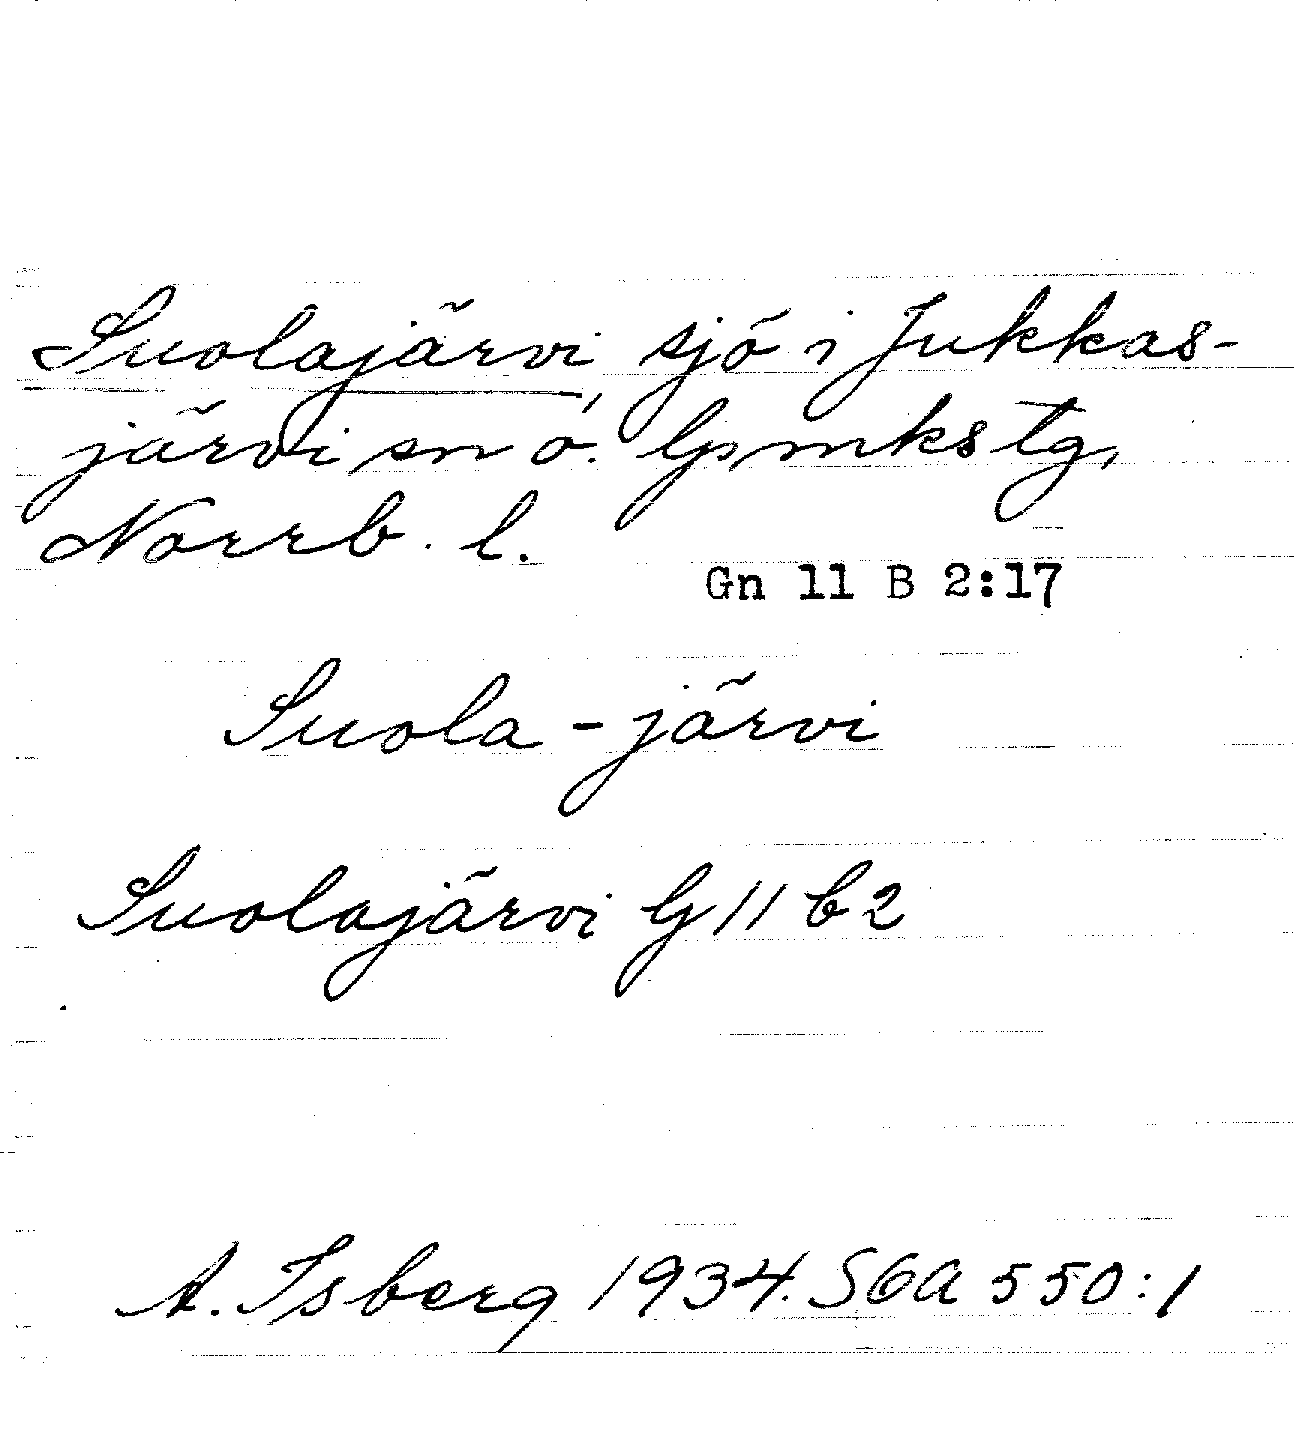 Suolajärvi, sjö i Jukkas-
järvi sn o. lpmkstg,
Norrb. l.
Gn 11 B 2:17
Suola - järvi
Suolajärvi G 11 b 2
A. Isberg 1934. SOA 550:1